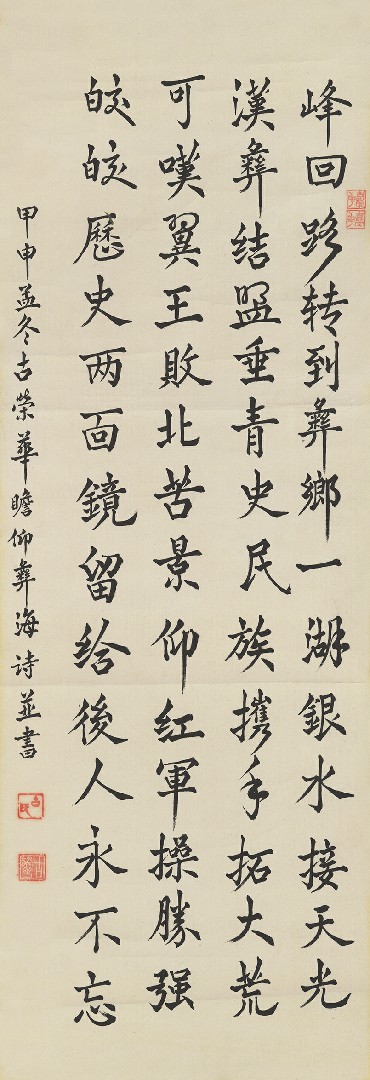 峰回路转到彝鄉一湖銀水接天光
漢彝結盟垂青史民族攜手拓大荒
可嘆翼王敗北苦景仰红軍操勝强
皎皎歷史两面鏡留给後人永不忘
甲申孟冬古榮華瞻仰彝海诗並書